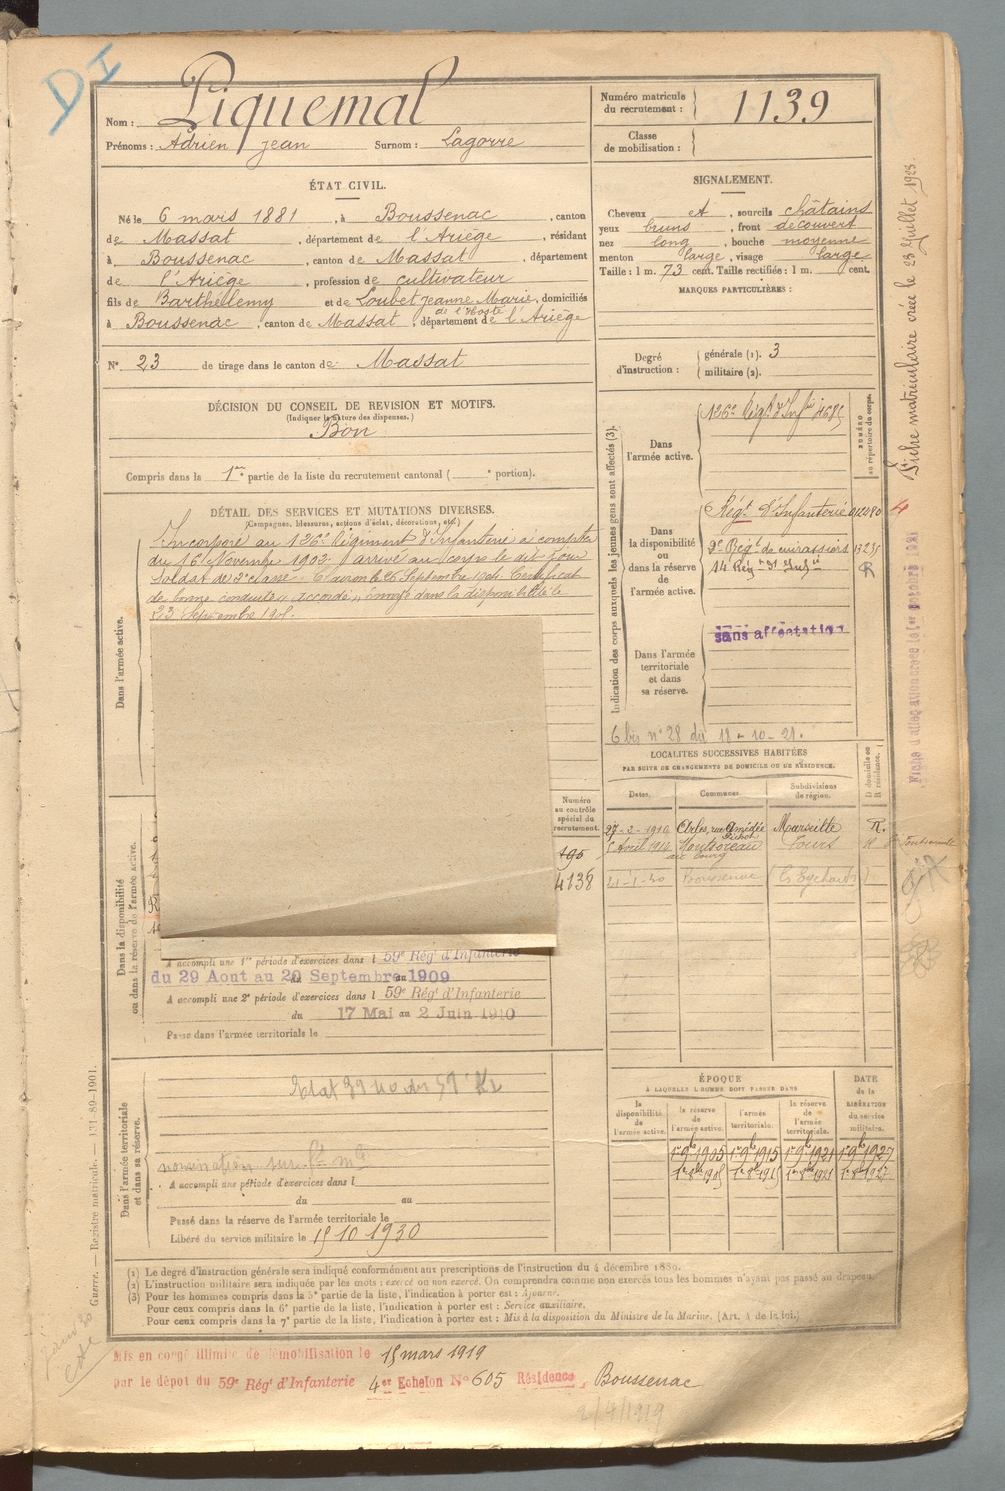 DI
Nom : Piquemal
Prénoms : Adrien Jean Surnom : Lagorre
Numéro matricule du recrutement : 1139
Classe de mobilisation :
ÉTAT CIVIL.
Né le 6 mars 1881, à Boussenac, canton
de Massat, département de l'Ariège, résidant
à Boussenac, canton de Massat, département
de l'Ariège, profession de cultivateur
fils de Barthélemy et de Loubet Jeanne Marie, domiciliés
à Boussenac, canton de Massat, département de l'Ariège
N° 23 de tirage dans le canton de Massat
SIGNALEMENT.
Cheveux et, sourcils châtains
yeux bruns, front découvert
nez long, bouche moyenne
menton large, visage large
Taille : 1 m. 73 cent. Taille rectifiée : 1 m. cent.
MARQUES PARTICULIÈRES :
Degré d'instruction : générale (1). 3
militaire (2).
DÉCISION DU CONSEIL DE REVISION ET MOTIFS.
(Indiquer la nature des dispenses.)
Bon
Compris dans la 1re partie de la liste du recrutement cantonal ( e portion).
DÉTAIL DES SERVICES ET MUTATIONS DIVERSES.
(Campagnes, blessures, actions d'éclat, décorations, etc.)
Dans l'armée active.
Incorporé au 126e Régiment d'Infanterie à compter
du 16 Novembre 1902. arrivé au corps le dit jour
soldat de 2e classe. Certificat
de bonne conduite accordé, envoyé dans la disponibilité le
23 Septembre
Dans la disponibilité ou dans la réserve de l'armée active.
Numéro au contrôle spécial du recrutement.
195
4138
A accompli une 1re période d'exercices dans l 59e Régt d'Infanterie
du 29 Aout au 20 Septembre 1909
A accompli une 2e période d'exercices dans l 59e Régt d'Infanterie
du 17 Mai au 2 Juin 1910
Passé dans l'armée territoriale le
Dans l'armée territoriale et dans sa réserve.
nomination sur
A accompli une période d'exercices dans l
du au
Passé dans la réserve de l'armée territoriale le
Libéré du service militaire le 15 10 1930
Indication des corps auxquels les jeunes gens sont affectés (3).
NUMÉRO au répertoire du corps.
Dans l'armée active.
126e Régt d'Infie
Dans la disponibilité ou dans la réserve de l'armée active.
Régt d'Infanterie
9e Régt de cuirassiers
14 Régt d'Infie
R
Dans l'armée territoriale et dans sa réserve.
sans affectation
6 bis n° 28 du 11-10-21.
LOCALITÉS SUCCESSIVES HABITÉES
PAR SUITE DE CHANGEMENTS DE DOMICILE OU DE RÉSIDENCE.
Dates. Communes. Subdivisions de région. D domicile ou R résidence.
27-2-1910 Arles, rue Amédée Pichot Marseille R.
1 Avril 1914 Montsoreau au bourg Tours R
21-1-20 Boussenac
ÉPOQUE
À LAQUELLE L'HOMME DOIT PASSER DANS
DATE de la LIBÉRATION du service militaire.
la disponibilité de l'armée active. la réserve de l'armée active. l'armée territoriale. la réserve de l'armée territoriale.
1er 9b 1905 1er 9b 1915 1er 9b 1921 1er 9b 1927
(1) Le degré d'instruction générale sera indiqué conformément aux prescriptions de l'instruction du 4 décembre 1889.
(2) L'instruction militaire sera indiquée par les mots : exercé ou non exercé. On comprendra comme non exercés tous les hommes n'ayant pas passé au drapeau.
(3) Pour les hommes compris dans la 5e partie de la liste, l'indication à porter est : Ajourné.
Pour ceux compris dans la 6e partie de la liste, l'indication à porter est : Service auxiliaire.
Pour ceux compris dans la 7e partie de la liste, l'indication à porter est : Mis à la disposition du Ministre de la Marine. (Art. 4 de la loi.)
Guerre. — Registre matricule. — 131-89-1901.
Mis en congé illimité de démobilisation le 15 mars 1919
par le dépôt du 59e Régt d'Infanterie 4er Echelon N° 605 Résidence, Boussenac
2/4/1919
Fiche matriculaire créée le 23 Juillet 1923.